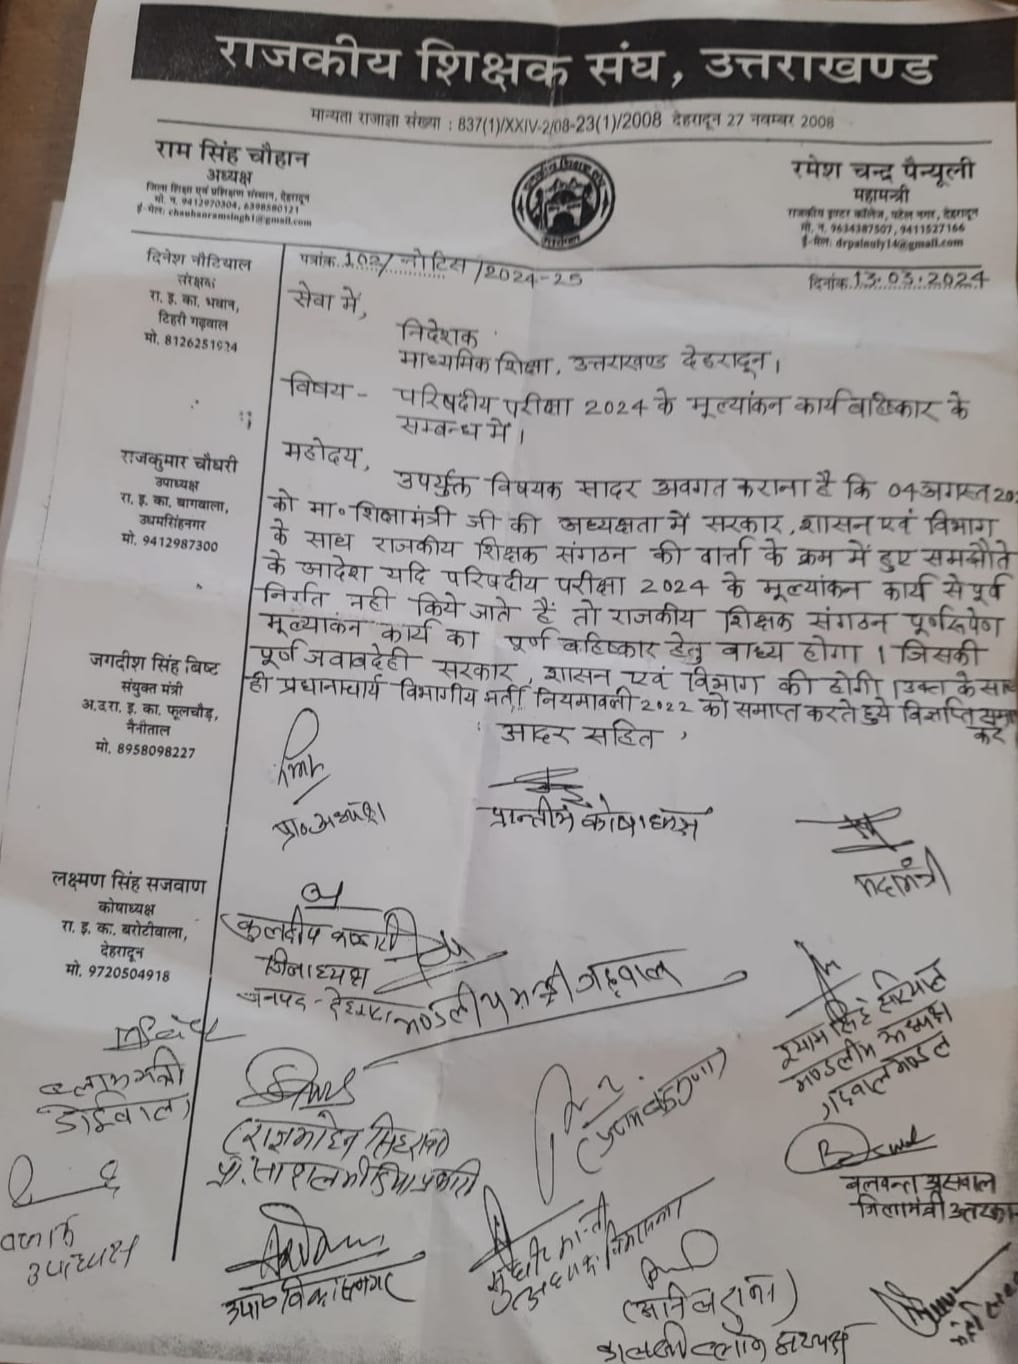 राजकीय शिक्षक संघ, उत्तराखण्ड
मान्यता राजाज्ञा संख्या : 837(1)/XXIV-2/08-23(1)/2008 देहरादून 27 नवम्बर 2008
राम सिंह चौहान
अध्यक्ष
जिला शिक्षा एवं प्रशिक्षण संस्थान, देहरादून
मो. न. 9412970304, 6398580121
ई-मेल: chauhanramsingh1@gmail.com
रमेश चन्द्र पैन्यूली
महामन्त्री
राजकीय इण्टर कॉलेज, पटेल नगर, देहरादून
मो. न. 9634387507, 9411527166
ई-मेल: drpainuly14@gmail.com
दिनेश नौटियाल
संरक्षक
रा. इ. का. भवान,
टिहरी गढ़वाल
मो. 8126251924
राजकुमार चौधरी
उपाध्यक्ष
रा. इ. का. बागवाला,
उधमसिंहनगर
मो. 9412987300
जगदीश सिंह बिष्ट
संयुक्त मंत्री
अ.उ.रा. इ. का. फूलचौड़,
नैनीताल
मो. 8958098227
लक्ष्मण सिंह सजवाण
कोषाध्यक्ष
रा. इ. का. बरोटीवाला,
देहरादून
मो. 9720504918
पत्रांक 102/नोटिस/2024-25
दिनांक 13.03.2024
सेवा में,
निदेशक
माध्यमिक शिक्षा, उत्तराखण्ड देहरादून।
विषय - परिषदीय परीक्षा 2024 के मूल्यांकन कार्य बहिष्कार के
सम्बन्ध में।
महोदय,
उपर्युक्त विषयक सादर अवगत कराना है कि 04 अगस्त
को मा० शिक्षामंत्री जी की अध्यक्षता में सरकार, शासन एवं विभाग
के साथ राजकीय शिक्षक संगठन की वार्त्ता के क्रम में हुए समझौते
के आदेश यदि परिषदीय परीक्षा 2024 के मूल्यांकन कार्य से पूर्व
निर्गत नही किये जाते हैं तो राजकीय शिक्षक संगठन पूर्णरूपेण
मूल्यांकन कार्य का पूर्ण बहिष्कार हेतु बाध्य होगा। जिसकी
पूर्ण जवाबदेही सरकार, शासन एवं विभाग की होगी। उक्त के साथ
ही प्रधानाचार्य विभागीय भर्ती नियमावली 2022 को समाप्त करते हुये विज्ञप्ति
करें
आदर सहित,
प्रा० अध्यक्ष
प्रान्तीय कोषाध्यक्ष
महामंत्री
कुलदीप
जिलाध्यक्ष
जनपद - देहरादून
मण्डलीय मन्त्री गढ़वाल
श्याम सिंह
मण्डलीय अध्यक्ष
गढ़वाल मण्डल
ब्लाक मंत्री
डोईवाला
प्रा. सोशल मीडिया प्रभारी
बलवन्त असवाल
जिलामंत्री
उपाध्यक्ष
उपा० विकासनगर
(अनिल राणा)
कालसी ब्लॉक अध्यक्ष